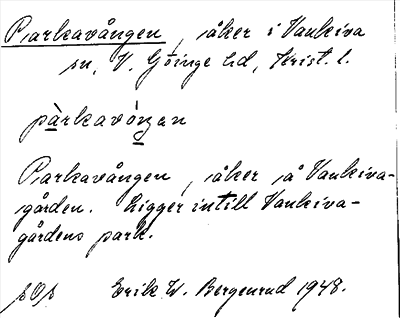 Parkavången, åker i Vankiva
sn, V. Göinge hd, Krist. l.
pàrkavóŋan
Parkavången, åker å Vankiva-
gården. Ligger intill Vankiva-
gårdens park.
Erik W. Bergenrud 1948.